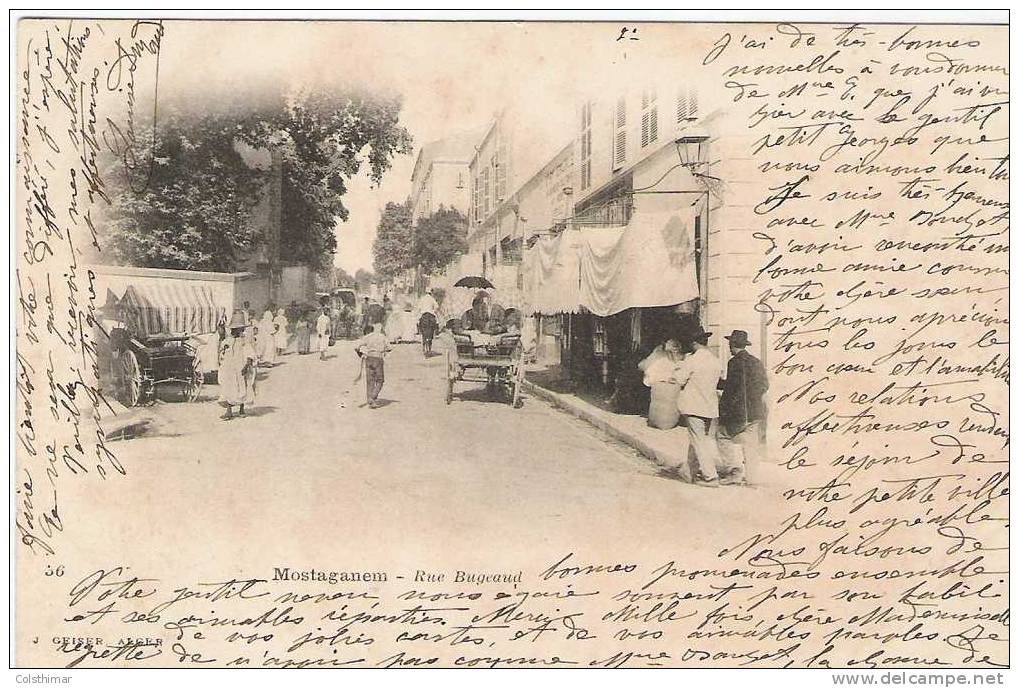 2°
J'ai de très-bonnes
nouvelles à vous donner
de Mme G. que j'ai vu
hier avec le gentil
petit Georges que
nous aimons bien
Je suis très-heureuse
avec Mme
d'avoir rencontré un
bonne amie comme
votre chère sœur,
dont nous apprécions
tous les jours le
bon cœur et l'amabilité
Nos relations
affectueuses rendent
le séjour de
votre petite ville
plus agréable.
Nous faisons de
bonnes promenades ensemble
Votre gentil neveu nous égaie souvent par son babil
et ses aimables réparties. Merci Mille fois, chère Mademoiselle
de vos jolies cartes et de vos aimables paroles. Je
regrette de n'avoir pas comme Mme la bonne de
faire bientôt votre connaissance
Ce ne sera que différé, j'espère
Veuillez recevoir, mes salutations
sympathiques et affectueuses
56
Mostaganem - Rue Bugeaud
J. GEISER ALGER
Colsthimar
www.delcampe.net